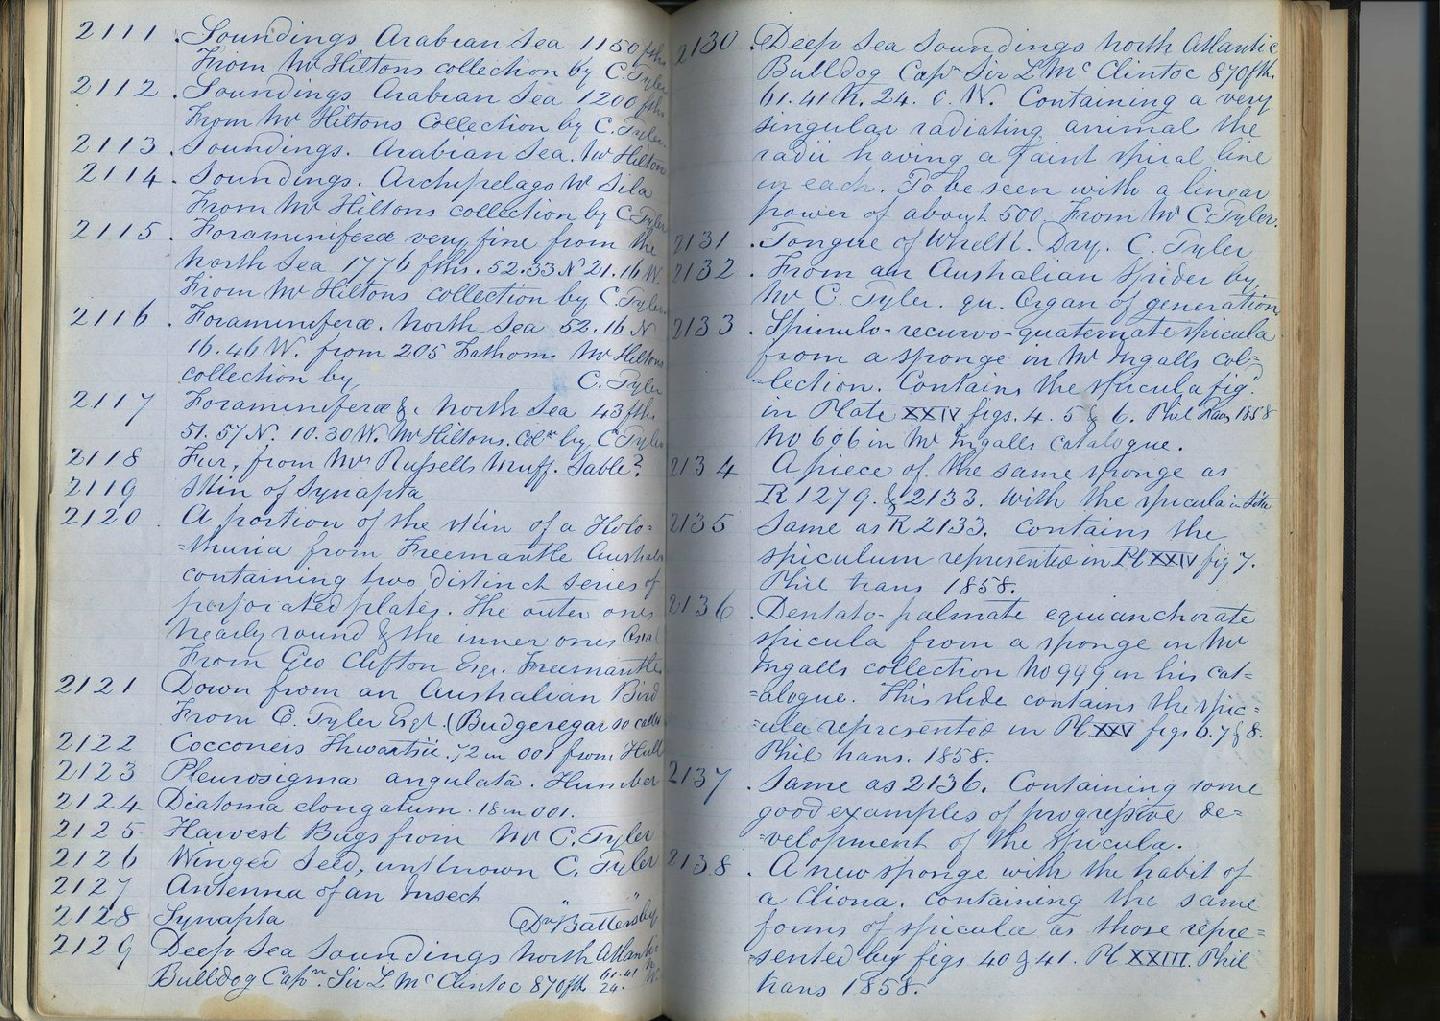 2111 . Soundings Arabian Sea 1150 fths
From Mr Hiltons collection by C. Tyler
2112 . Soundings Arabian Sea 1200 fths
From Mr Hiltons Collection by C. Tyler.
2113 . Soundings. Arabian Sea. Mr Hilton
2114 . Soundings. Archipelago W Sila
From Mr Hiltons collection by C Tyler
2115 . Foraminiferæ very fine from the
North Sea 1776 fths. 52.33 N 21.16 W.
From Mr Hiltons collection by C. Tyler.
2116 . Foraminiferæ. North Sea 52.16 N
16.46 W. from 205 Fathom. Mr Hiltons
collection by C. Tyler
2117 Foraminiferæ &c North Sea 43 fths.
51.57 N. 10.30 W. Mr Hiltons. Coln by C Tyler
2118 Fur, from Mrs Russells Muff. Sable?
2119 Skin of Synapta
2120 . A portion of the skin of a Holo=
=thuria from Freemantle Australia
containing two distinct series of
perforated plates. The outer ones
nearly round & the inner ones Oval
From Geo Clifton Esqr. Freemantle
2121 Down from an Australian Bird
From C. Tyler Esqr. (Budgeregar so called
2122 Cocconeis 72 in 001 from Hull
2123 Pleurosigma angulata. Humber
2124 Diatoma elongatum. 18 in 001.
2125 Harvest Bugs from Mr C. Tyler
2126 Winged Seed, unknown C. Tyler
2127 Antenna of an Insect "
2128 Synapta Dr Battersby
2129 Deep Sea Soundings North Atlantic
Bulldog Capn. Sir L McClintoc 870 fth 61.41 N 24. W.
2130 . Deep Sea Soundings North Atlantic
Bulldog Capn Sir L McClintoc 870 fth.
61.41 N. 24. 6. W. Containing a very
singular radiating animal the
radii having a faint spiral line
in each. To be seen with a linear
power of about 500 From Mr C. Tyler.
2131 . Tongue of Whelk. Dry. C. Tyler
2132 . From an Australian Spider by
Mr C. Tyler. qu. Organ of generation
2133 . Spinulo-recurvo-quaternate spicula
from a sponge in Mr Ingalls col=
=lection. Contains the spicula fig.
in Plate XXIV figs. 4. 5 & 6. Phil Trans 1858
No 606 in Mr Ingalls catalogue.
2134 A piece of the same sponge as
R 1279. & 2133. With the spicula in situ
2135 Same as R 2133. Contains the
spiculum represented in Pl XXIV fig 7.
Phil trans 1858.
2136 . Dentato-palmate equianchorate
spicula from a sponge in Mr
Ingalls collection No 999 in his cat=
=alogue. This slide contains the spic=
=ula represented in Pl XXV figs 6. 7 & 8.
Phil trans. 1858.
2137 . Same as 2136. Containing some
good examples of progressive de=
=velopment of the spicula.
2138 . A new sponge with the habit of
a Cliona. containing the same
forms of spicula as those repre=
=sented by figs 40 & 41. Pl XXIII. Phil
trans 1858.